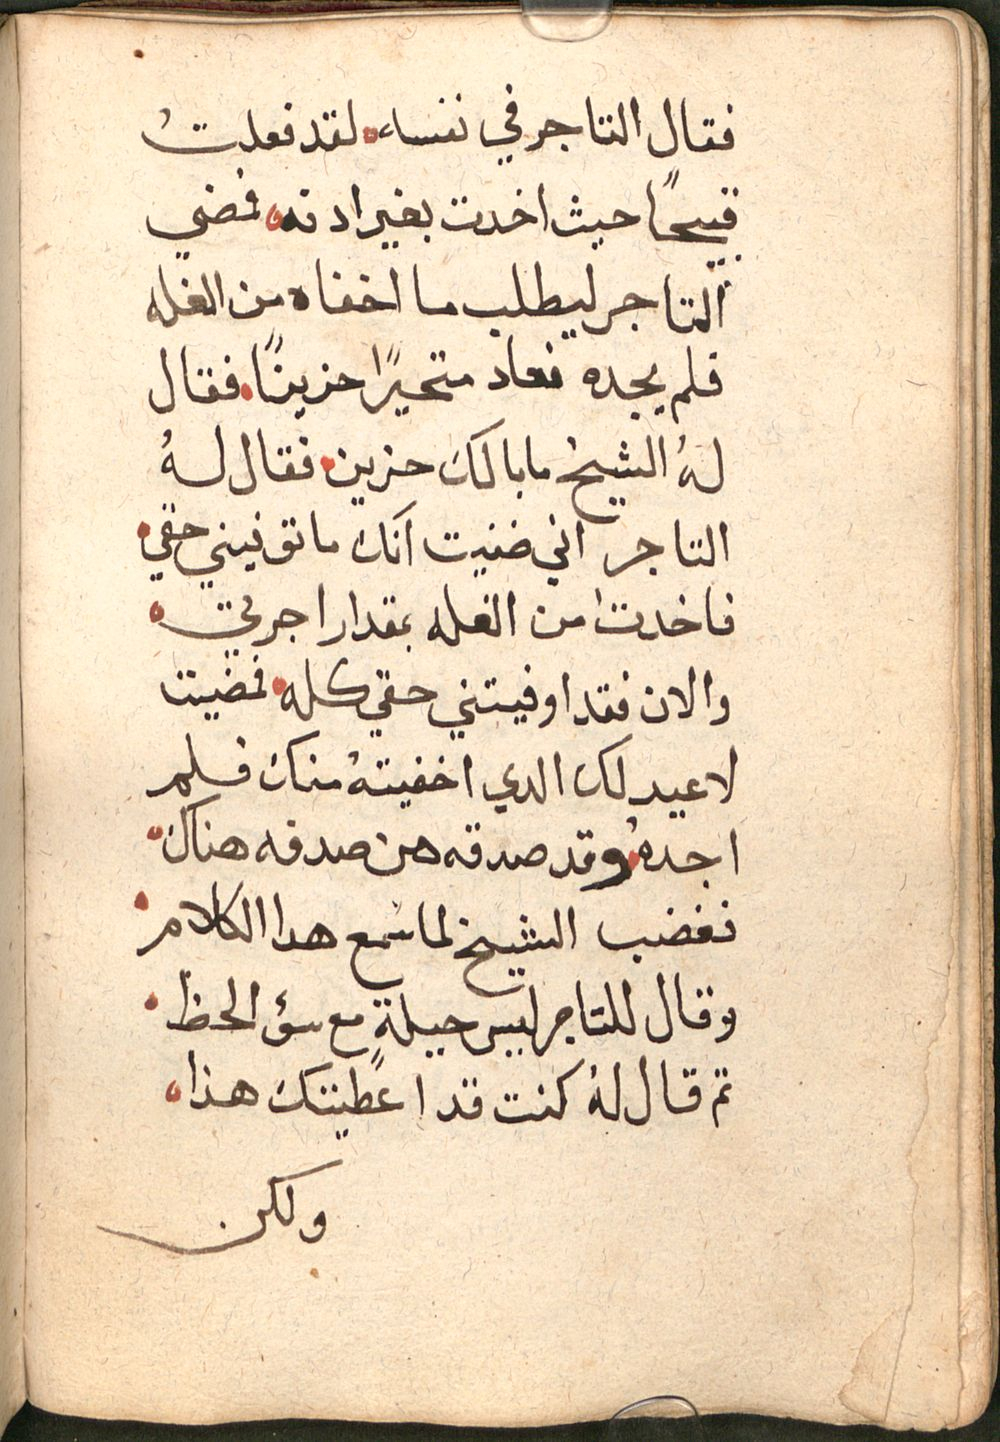 فقال التاجر في نفسه لقد فعلتُ
قبيحًا حيث اخدت بغير ادنه فمضي
التاجر ليطلب ما اخفاه من الغله
فلم يجده فعاد متحيرًا حزينًا فقال
لهُ الشيخ ما بالك حزين فقال لهُ
التاجر اني ضنيت انك ما توفيني حقي
فاخدتُ من الغله بمقدار اجرتي
والان فقد اوفيتني حقي كله فمضيت
لاعيد لك الدي اخفيتهُ منك فلم
اجدهُ وقد صدقه من صدفه هناك
فغضب الشيخ لما سمع هدا الكلام
وقال للتاجر ليس حيلةٍ مع سؤ الحظ
تم قال لهُ كنت قد اعطيتك هذا
ولكن